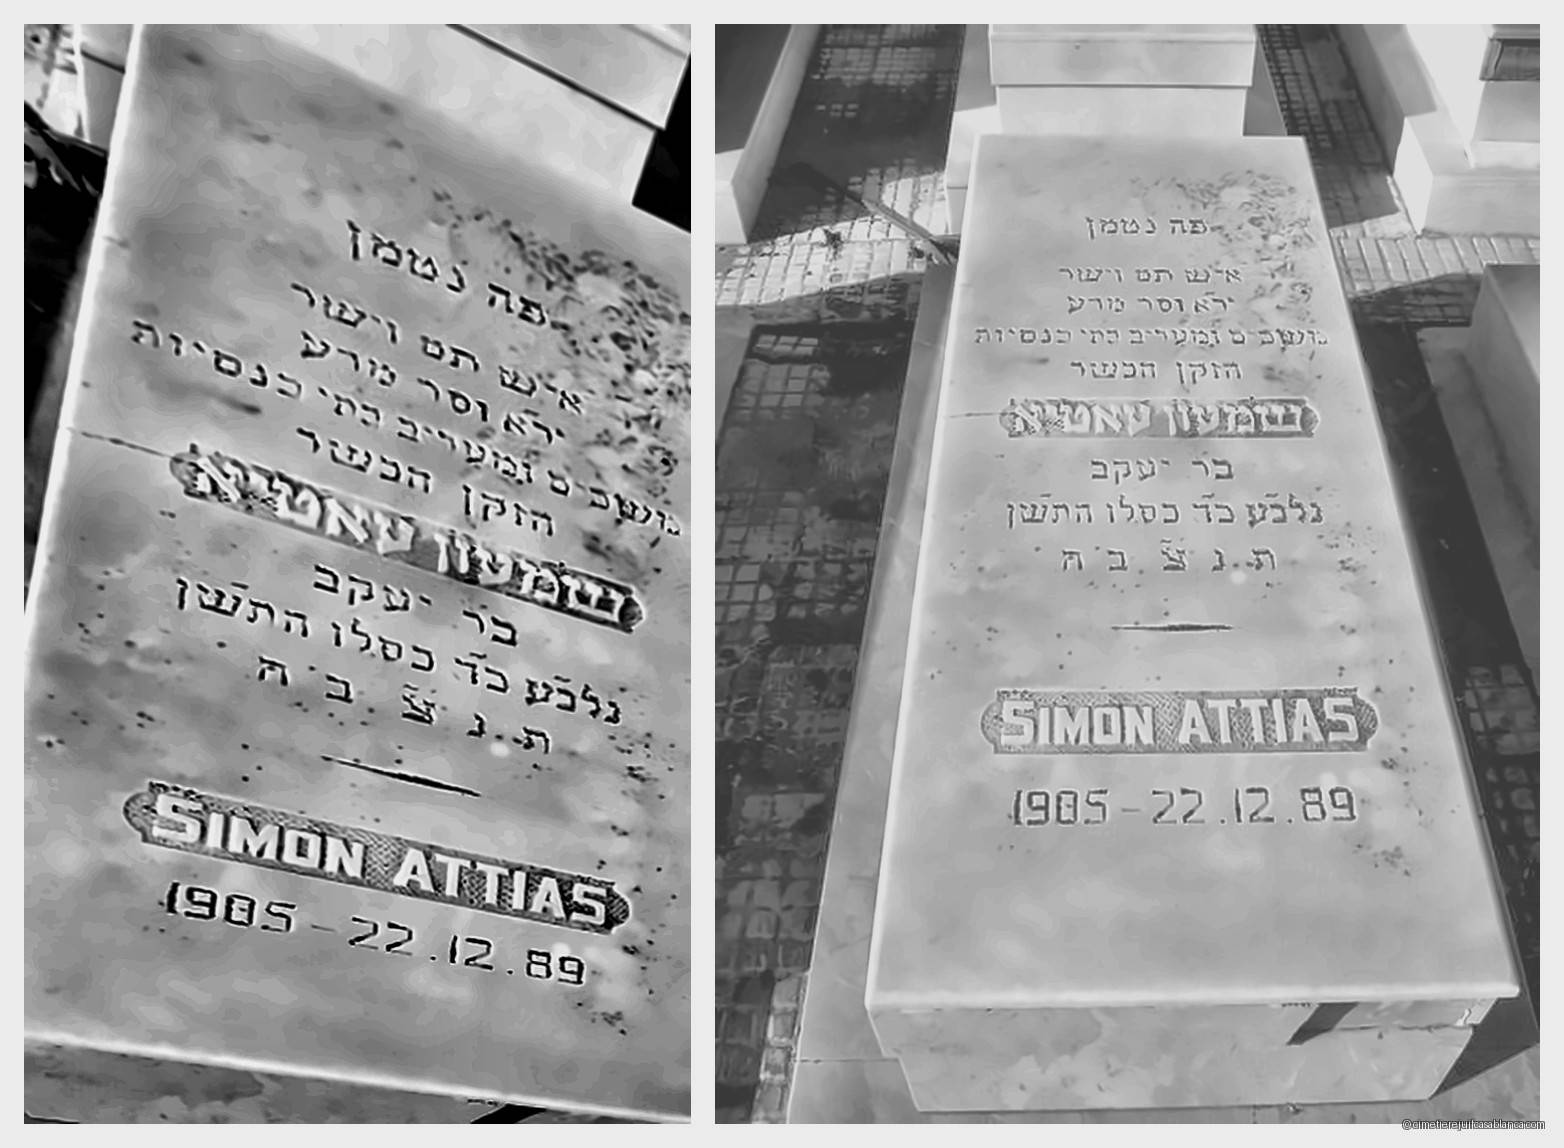 פה נטמן
איש תם וישר
ירא וסר מרע
מושכים ומעריב בתי כנסיות
הזקן הכשר
שמעון עאטייא
בר יעקב
נלבע כד כסלו התשן
ת נ צ ב ה
SIMON ATTIAS
1905 - 22.12.89
פה נטמן
איש תם וישר
ירא וסר מרע
מושכים ומעריב בתי כנסיות
הזקן הכשר
שמעון עאטייא
בר יעקב
נלבע כד כסלו התשן
ת נ צ ב ה
SIMON ATTIAS
1905 - 22.12.89
©cimetierejuifcasablanca.com